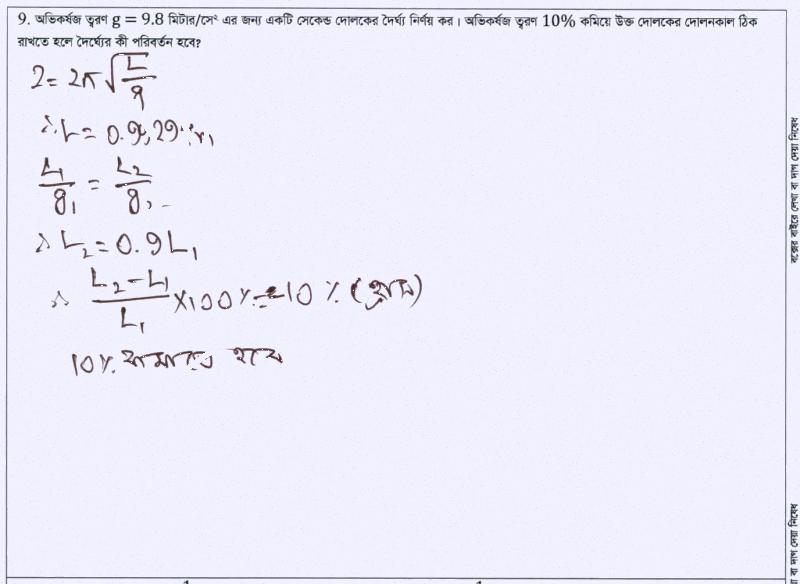 9. অভিকর্ষজ ত্বরণ g = 9.8 মিটার/সে² এর জন্য একটি সেকেন্ড দোলকের দৈর্ঘ্য নির্ণয় কর। অভিকর্ষজ ত্বরণ 10% কমিয়ে উক্ত দোলকের দোলনকাল ঠিক
রাখতে হলে দৈর্ঘ্যের কী পরিবর্তন হবে?
2 = 2π √(L/g)
∴ L = 0.9929 m
L₁/g₁ = L₂/g₂
∴ L₂ = 0.9 L₁
∴ (L₂ - L₁)/L₁ × 100% = -10 % (হ্রাস)
10% কমাতে হবে
বক্সের বাইরে লেখা বা দাগ দেয়া নিষেধ
বা দাগ দেয়া নিষেধ